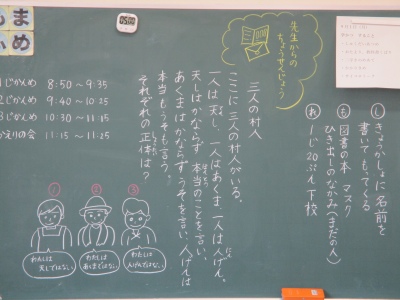 し きょうかしょに 名前を
書いて もってくる
も 図書の本 マスク
ひき出しのなかみ(まだの人)
れ 1じ20ぷん下校
先生からの
ちょうせんじょう
三人の村人
ここに 三人の村人がいる。
一人は天し、一人はあくま、一人は人げん。
天しはかならず 本当のことを言い、
あくまはかならずうそを言い、人げんは
本当もうそも言う。
それぞれの正体は?
1じかんめ 8:50~9:35
2じかんめ 9:40~10:25
3じかんめ 10:30~11:15
かえりの会 11:15~11:25
①
②
③
わたしは
天しではない。
わたしは
あくまではない。
わたしは
人げんではない。